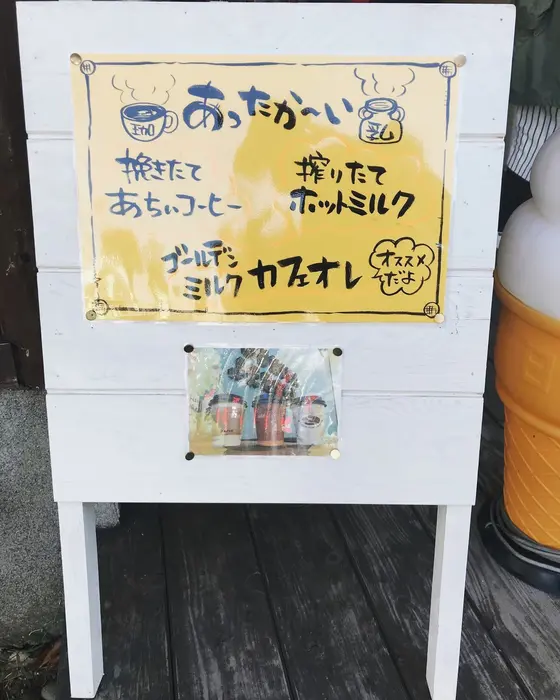 あったか〜い
珈
乳
挽きたて
あっちぃコーヒー
搾りたて
ホットミルク
ゴールデン
ミルク
カフェオレ
オススメ
だよ